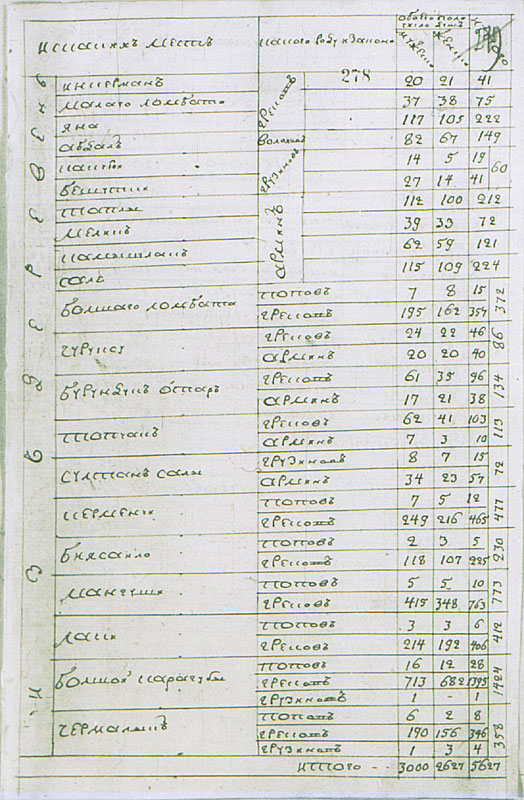 ис какихъ местъ какого роду и закона обоего пола число душъ
из деревень
278
инкерманъ грековъ 20 21 41
малаго ломбата 37 38 75
яна 117 105 222
абдалъ волоховъ 82 67 149
грузиновъ 14 5 19 60
бешуишки 27 14 41
топлы армянъ 112 100 212
мелики 39 33 72
камышлакъ 62 59 121
сала 115 109 224
болшаго ломбата поповъ 7 8 15 372
грековъ 195 162 357
чуруксу грековъ 24 22 46 86
армянъ 20 20 40
бурундукъ отаръ грековъ 61 35 96 134
армянъ 17 21 38
топчакъ грековъ 62 41 103 113
армянъ 7 3 10
султанъ сала грузиновъ 8 7 15 72
армянъ 34 23 57
керменчи поповъ 7 5 12 477
грековъ 249 216 465
биясало поповъ 2 3 5 230
грековъ 118 107 225
мангуши поповъ 5 5 10 773
грековъ 415 348 763
лаки поповъ 3 3 6 412
грековъ 214 192 406
болшой карагубы поповъ 16 12 28 1424
грековъ 713 682 1395
грузиновъ 1 - 1
чермалыкъ поповъ 6 2 8 358
грековъ 190 156 346
грузиновъ 1 3 4
итого - - 3000 2627 5627